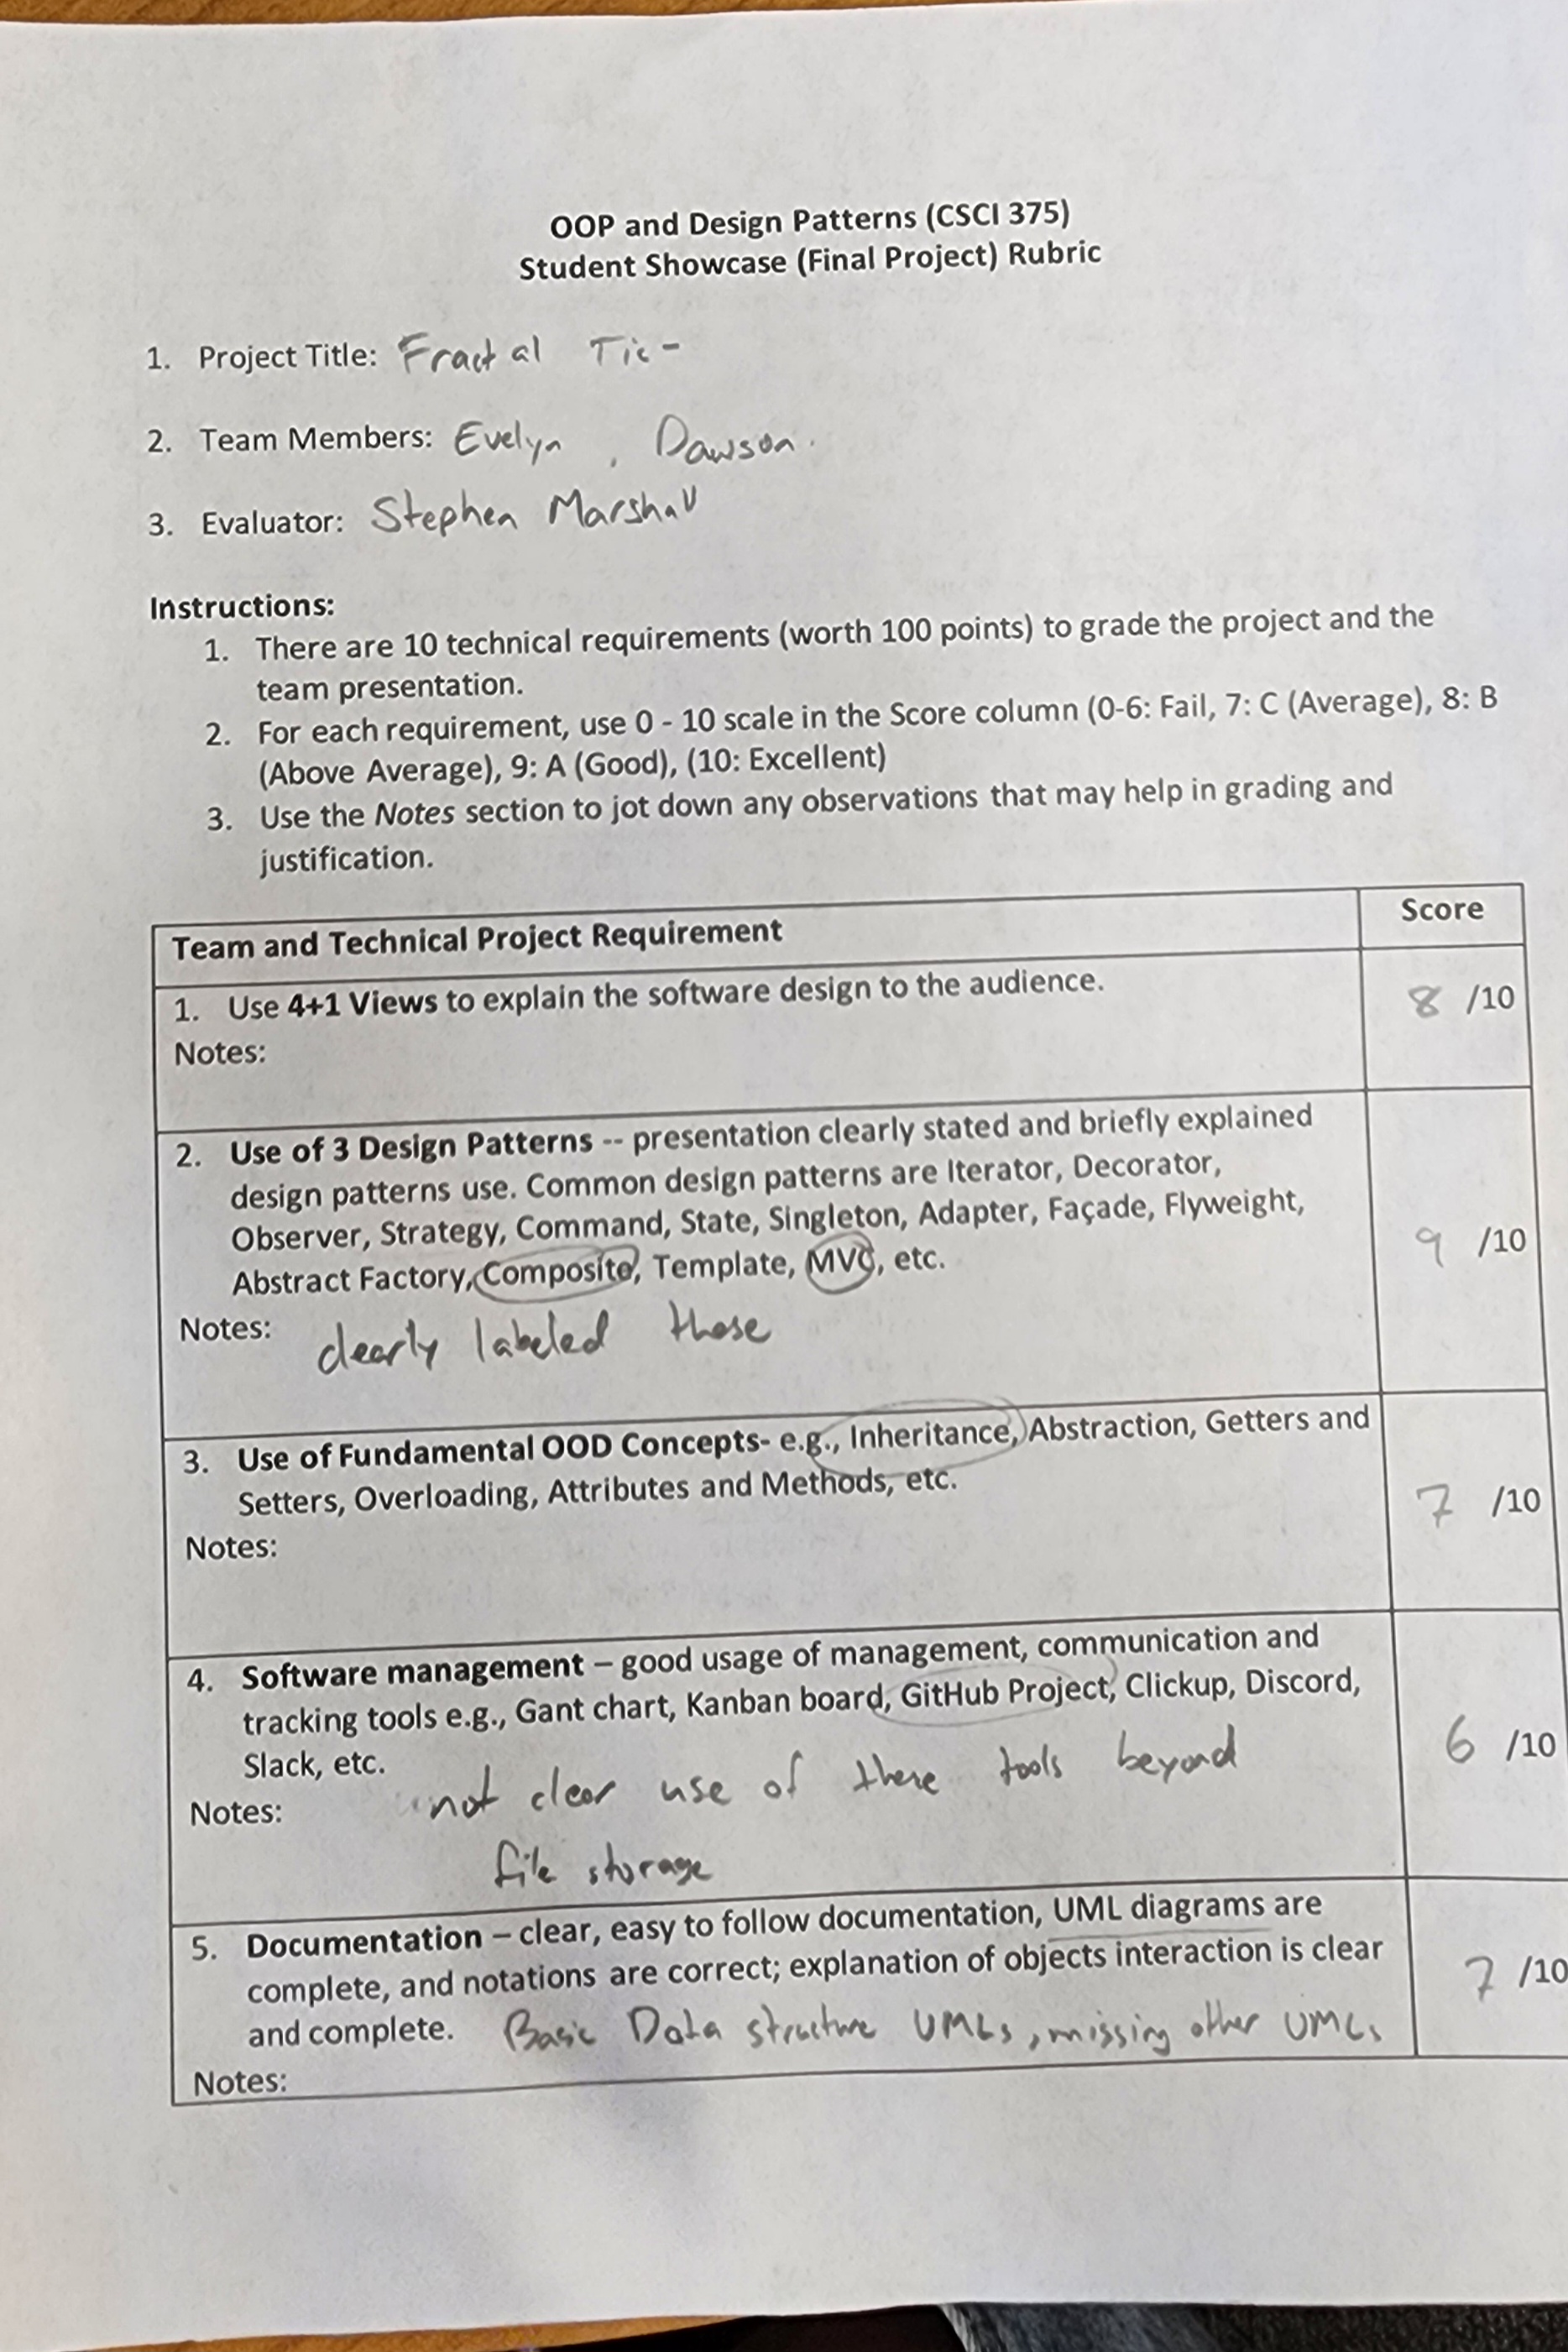 OOP and Design Patterns (CSCI 375)
Student Showcase (Final Project) Rubric
1. Project Title: Fractal Tic-
2. Team Members: Evelyn, Dawson.
3. Evaluator: Stephen Marshall
Instructions:
1. There are 10 technical requirements (worth 100 points) to grade the project and the
team presentation.
2. For each requirement, use 0 - 10 scale in the Score column (0-6: Fail, 7: C (Average), 8: B
(Above Average), 9: A (Good), (10: Excellent)
3. Use the Notes section to jot down any observations that may help in grading and
justification.
Team and Technical Project Requirement
Score
1. Use 4+1 Views to explain the software design to the audience.
8 /10
Notes:
2. Use of 3 Design Patterns -- presentation clearly stated and briefly explained
design patterns use. Common design patterns are Iterator, Decorator,
Observer, Strategy, Command, State, Singleton, Adapter, Façade, Flyweight,
Abstract Factory, Composite, Template, MVC, etc.
9 /10
Notes: clearly labeled those
3. Use of Fundamental OOD Concepts- e.g., Inheritance, Abstraction, Getters and
Setters, Overloading, Attributes and Methods, etc.
7 /10
Notes:
4. Software management – good usage of management, communication and
tracking tools e.g., Gant chart, Kanban board, GitHub Project, Clickup, Discord,
Slack, etc.
6 /10
Notes: not clear use of there tools beyond
file storage
5. Documentation – clear, easy to follow documentation, UML diagrams are
complete, and notations are correct; explanation of objects interaction is clear
7 /10
and complete. Basic Data structure UMLs, missing other UMLs
Notes: